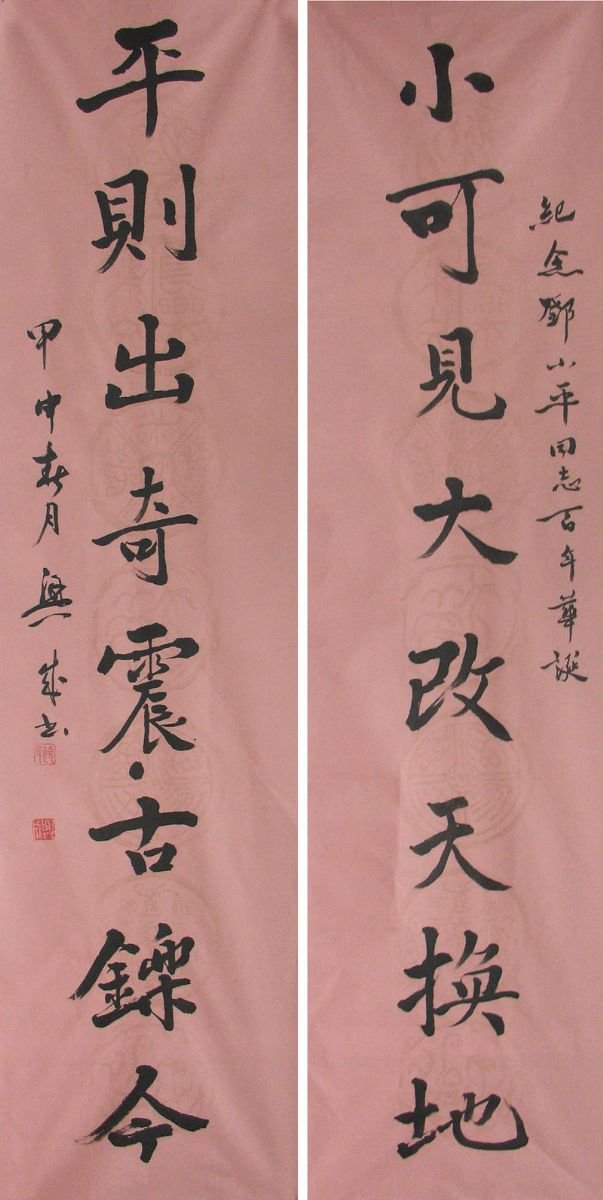 紀念鄧小平同志百年華誕
小可見大改天換地
平則出奇震古鑠今
甲申春月興成書